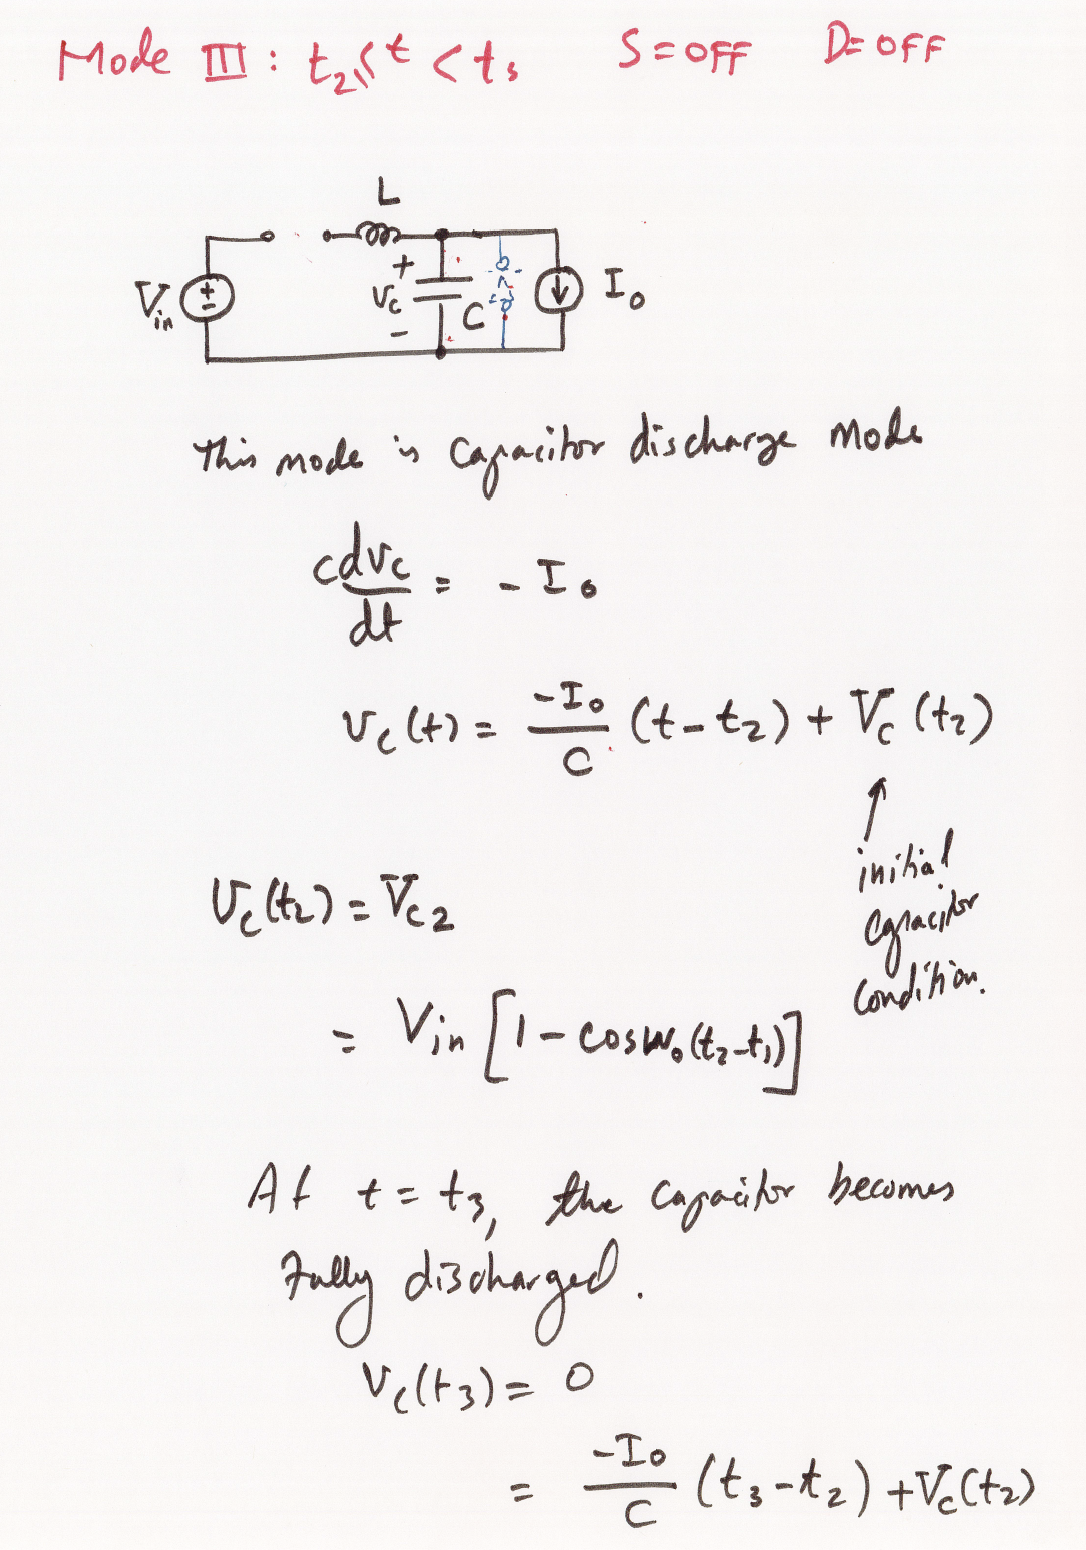 Mode III : t₂ < t < t₃ S = OFF D = OFF
L
+
Vin
+
-
vc
C
I₀
-
This mode is Capacitor discharge mode
C dvc/dt = - I₀
vc(t) = -I₀/C (t - t₂) + Vc(t₂)
↑
initial
capacitor
condition.
vc(t₂) = Vc2
= Vin [1 - cosω₀(t₂-t₁)]
At t = t₃, the capacitor becomes
fully discharged.
vc(t₃) = 0
= -I₀/C (t₃ - t₂) + Vc(t₂)